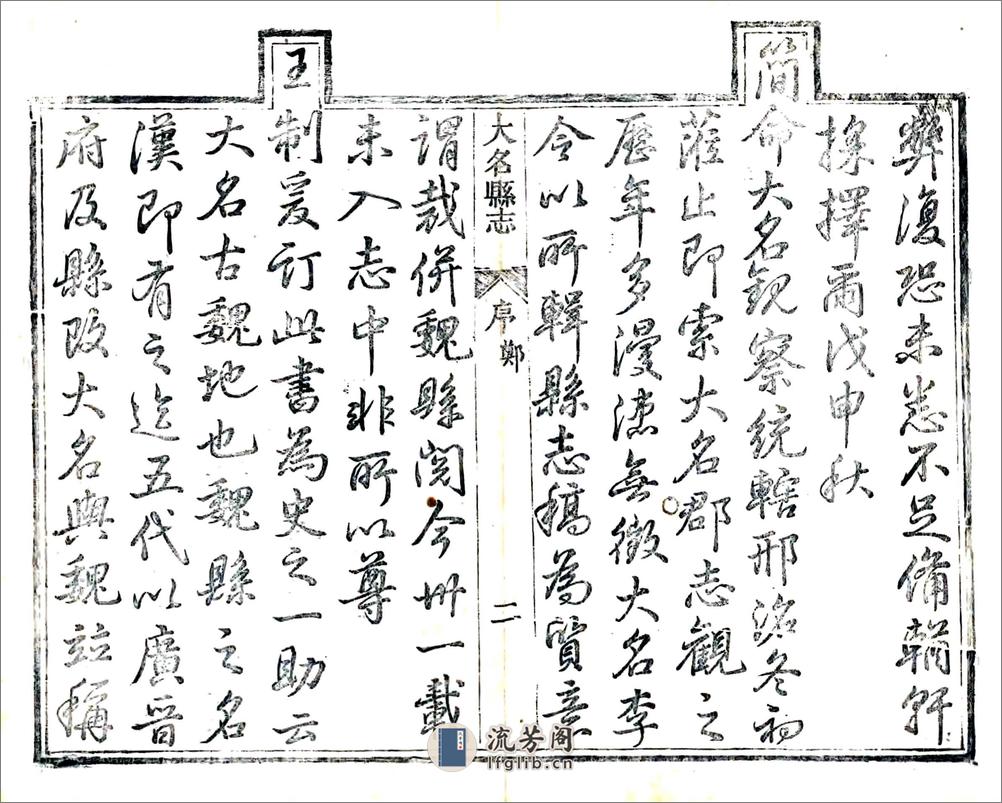 弊復恐未悉不足備輶軒
採擇爾戊申秋
簡命大名觀察統轄邢洺冬初
蒞止即索大名郡志觀之
歷年多漫漶無徵大名李
令以所輯縣志稿為質意
大名縣志
序 鄭
二
謂裁併魏縣閱今卅一載
未入志中非所以尊
王制爰訂此書為史之一助云
大名古魏地也魏縣之名
漢即有之迨五代以廣晉
府及縣改大名與魏竝稱
流芳阁
lfglib.cn